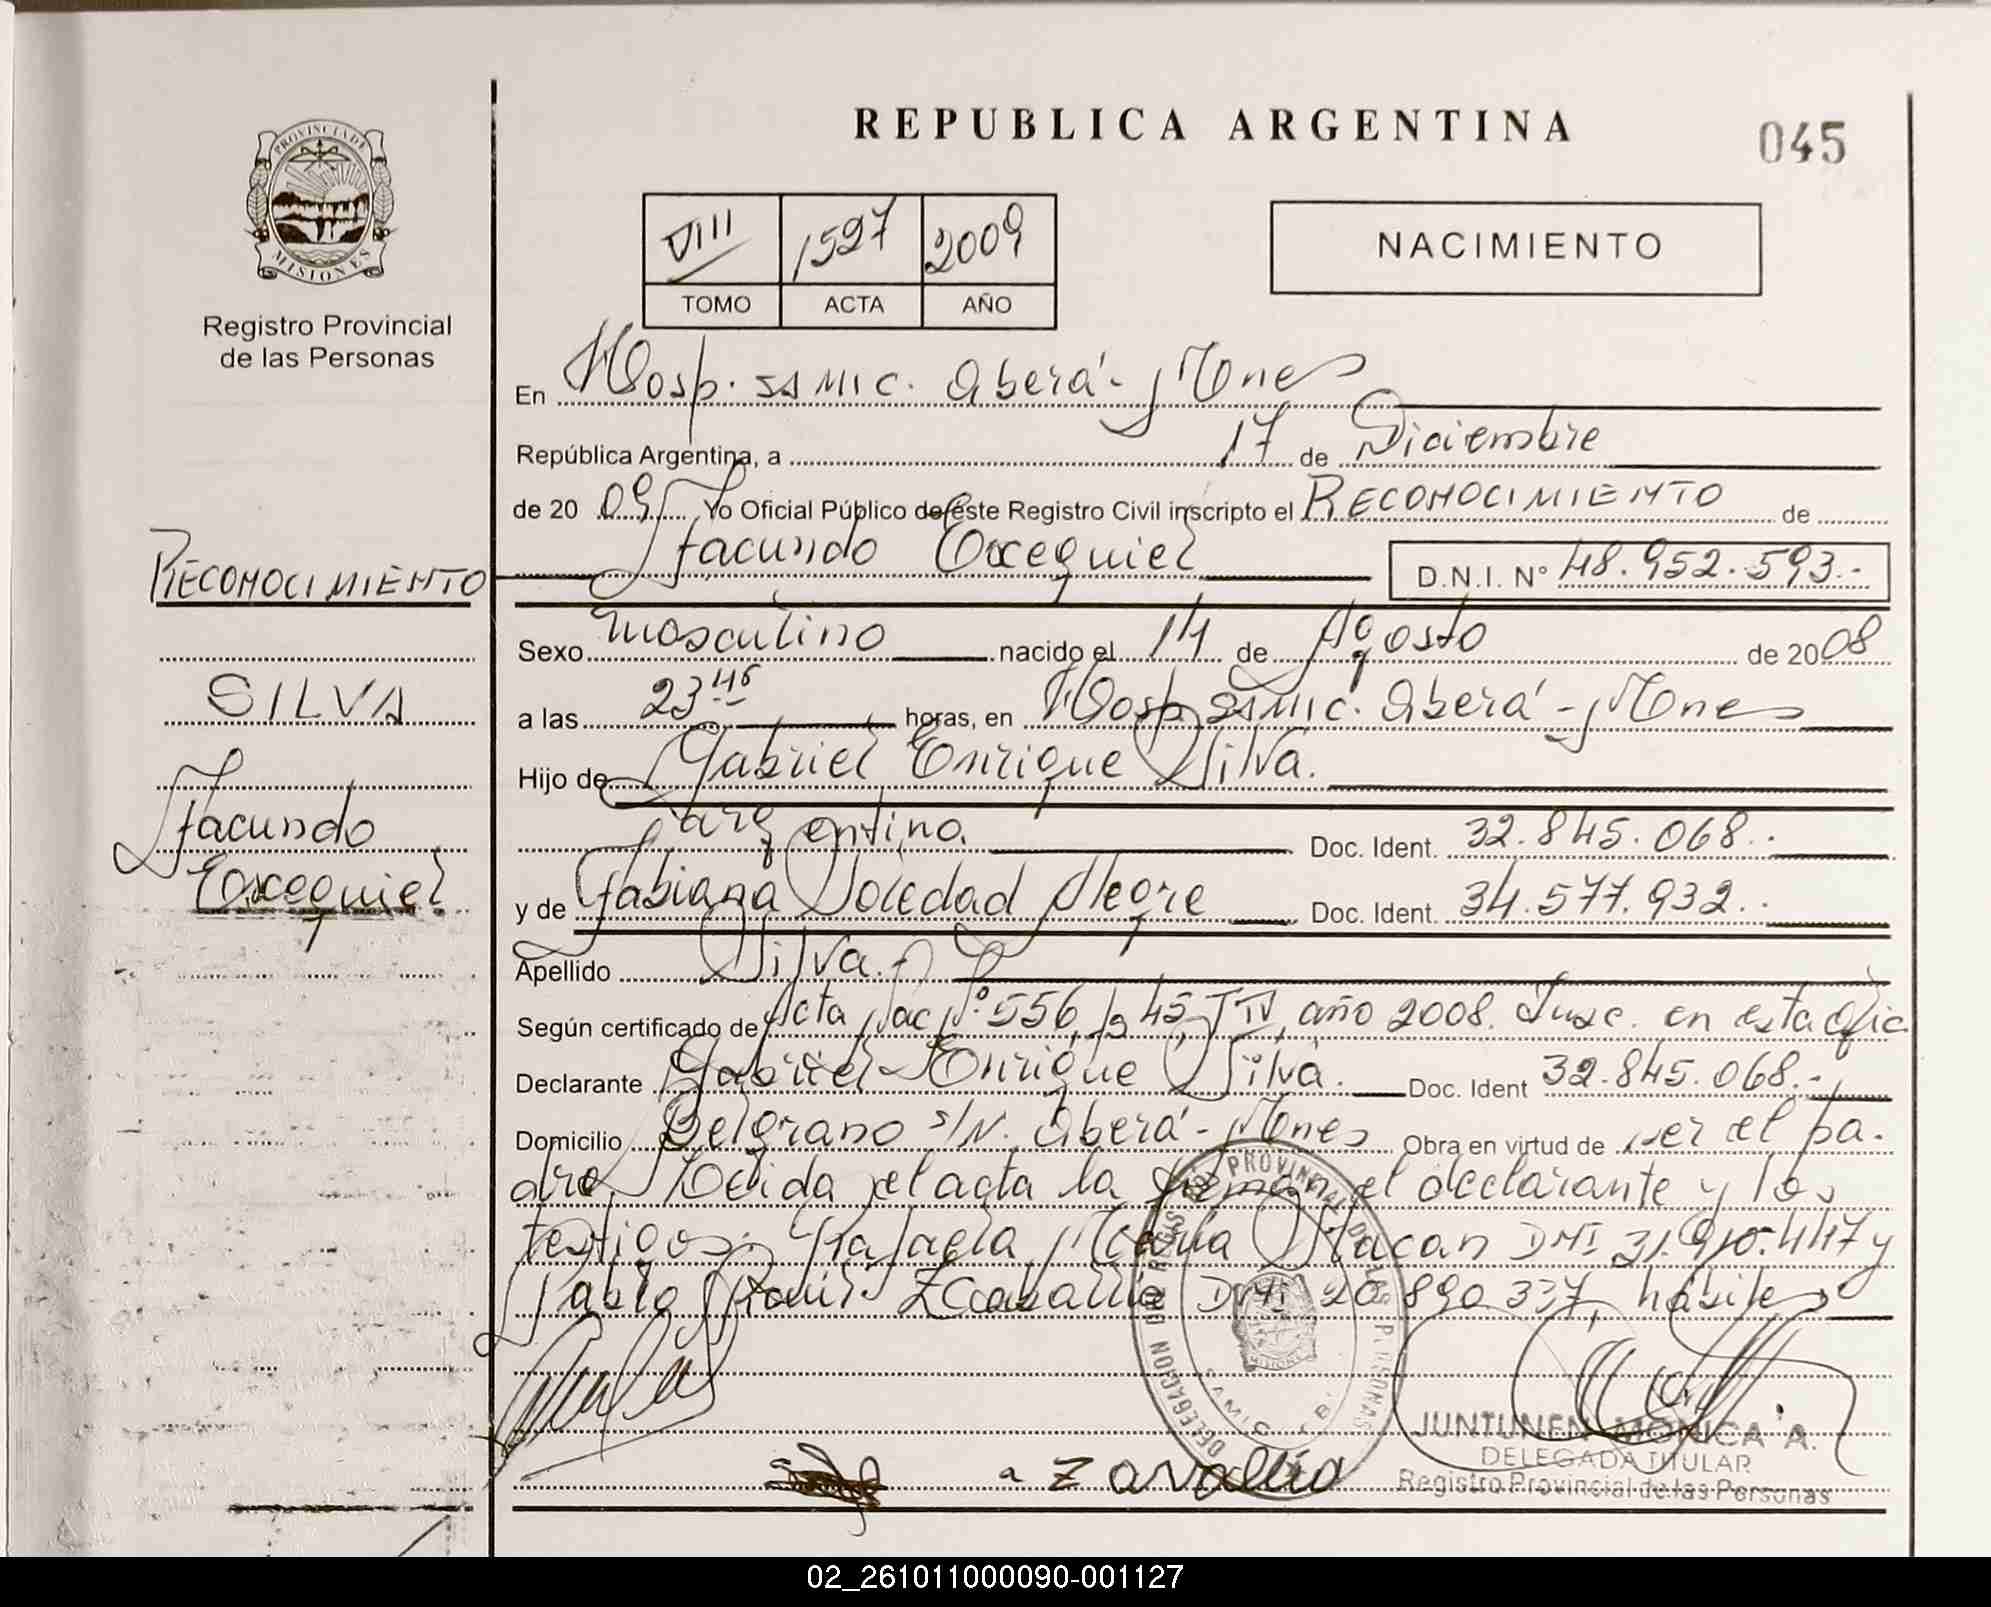 REPUBLICA ARGENTINA
045
PROVINCIA DE
MISIONES
Registro Provincial
de las Personas
VIII 1597 2009
TOMO ACTA AÑO
NACIMIENTO
En Hosp. SAMIC. Oberá - Mnes
República Argentina, a 17 de Diciembre
de 20 09 Yo Oficial Público de este Registro Civil inscripto el RECONOCIMIENTO de
Facundo Exequiel D.N.I. N° 48.952.593.-
RECONOCIMIENTO
SILVA
Facundo
Exequiel
Sexo masculino nacido el 14 de Agosto de 2008
a las 23 45 horas, en Hosp. SAMIC. Oberá - Mnes
Hijo de Gabriel Enrique Silva.
argentino. Doc. Ident. 32.845.068.-
y de Fabiana Soledad Alegre Doc. Ident. 34.577.932.-
Apellido Silva.
Según certificado de Acta Nac N° 556, Fº 45, T IV, año 2008. Insc. en esta Ofic
Declarante Gabriel Enrique Silva. Doc. Ident 32.845.068.-
Domicilio Belgrano s/N. Oberá - Mnes Obra en virtud de ser el pa-
dre. Leida el acta la firman el declarante y los
testigos: Rafaela María DNI 31.910.447 y
Pablo DNI 20.890.337, hábiles
a Zavallia
JUNTUNEN MONICA A.
DELEGADA TITULAR
Registro Provincial de las Personas
02_261011000090-001127